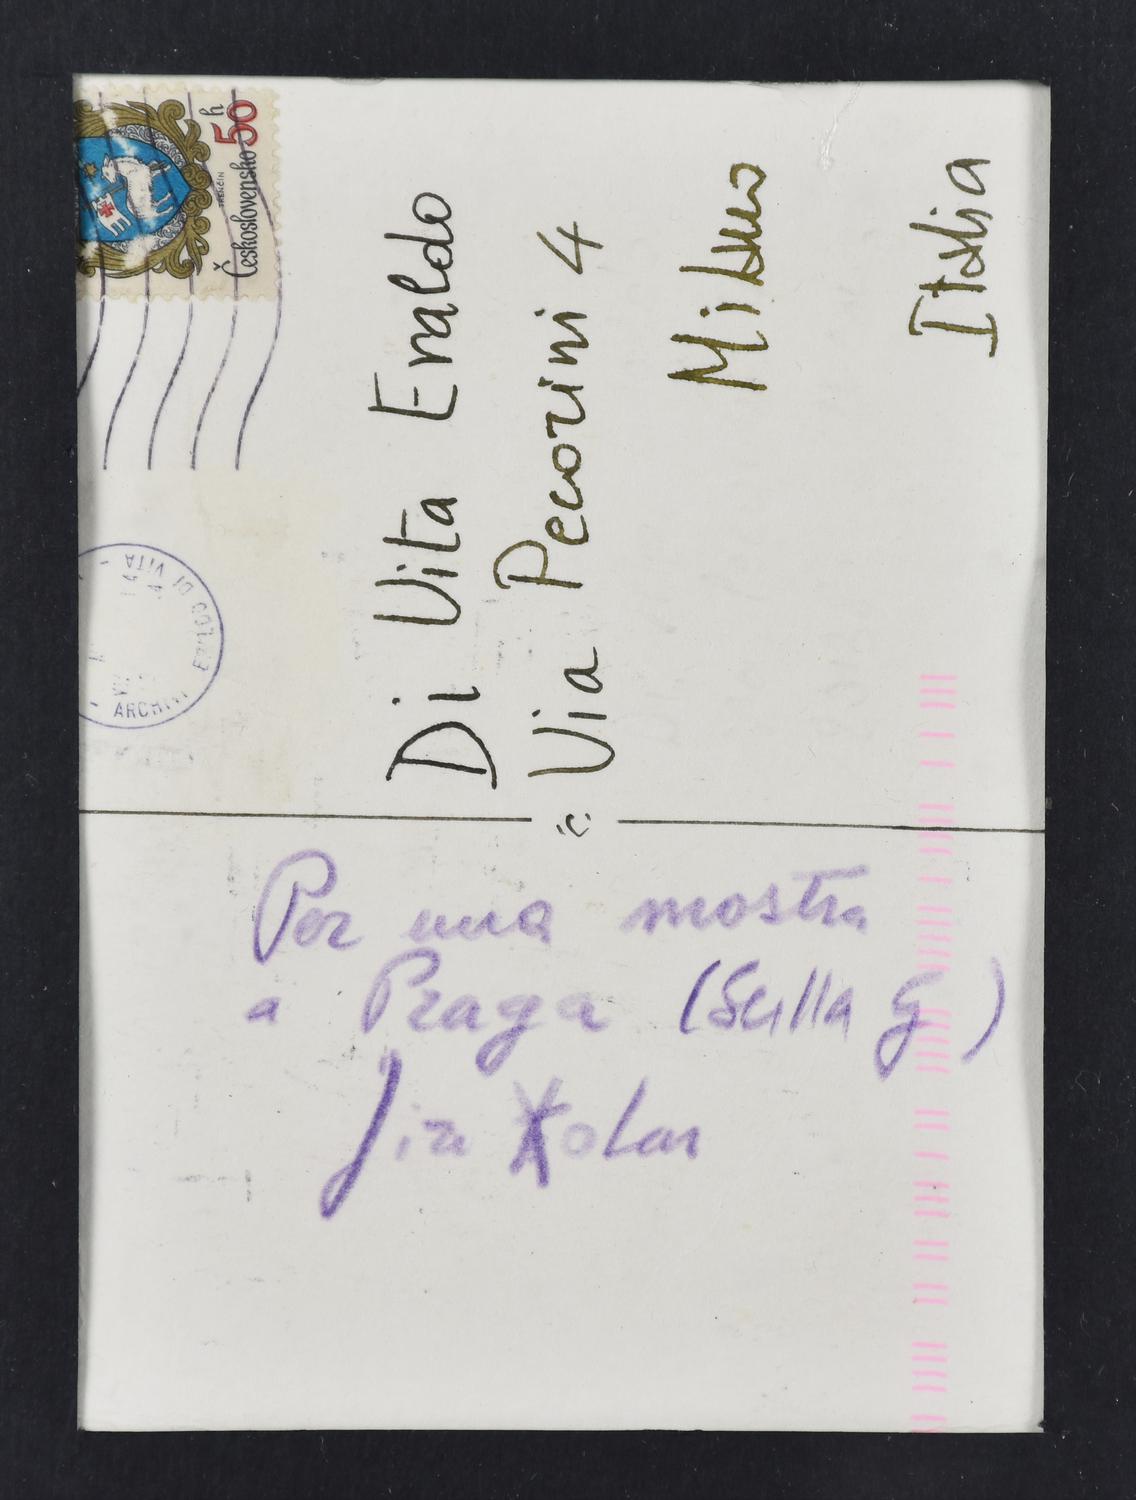 Československo 50 h
TRENČÍN
ARCHIVI
DI VITA
Di Vita Eraldo
Via Pecorini 4
Milano
Italia
Per una mostra
a Praga (Scilla G)
Jiri Kolar